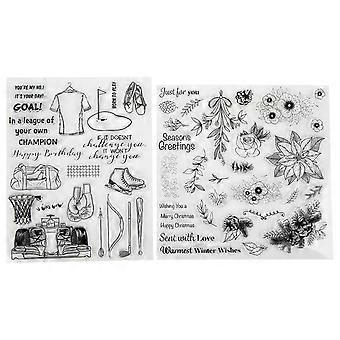 YOU'RE MY NO.1
IT'S YOUR DAY!
GOAL!
In a league of
your own
CHAMPION
Happy Birthday
BORN TO PLAY
IF IT DOESN'T
challenge you
IT WON'T
change you
Just for you
Seasons
Greetings
Wishing You a
Merry Christmas
Happy Christmas
Sent with Love
Warmest Winter Wishes